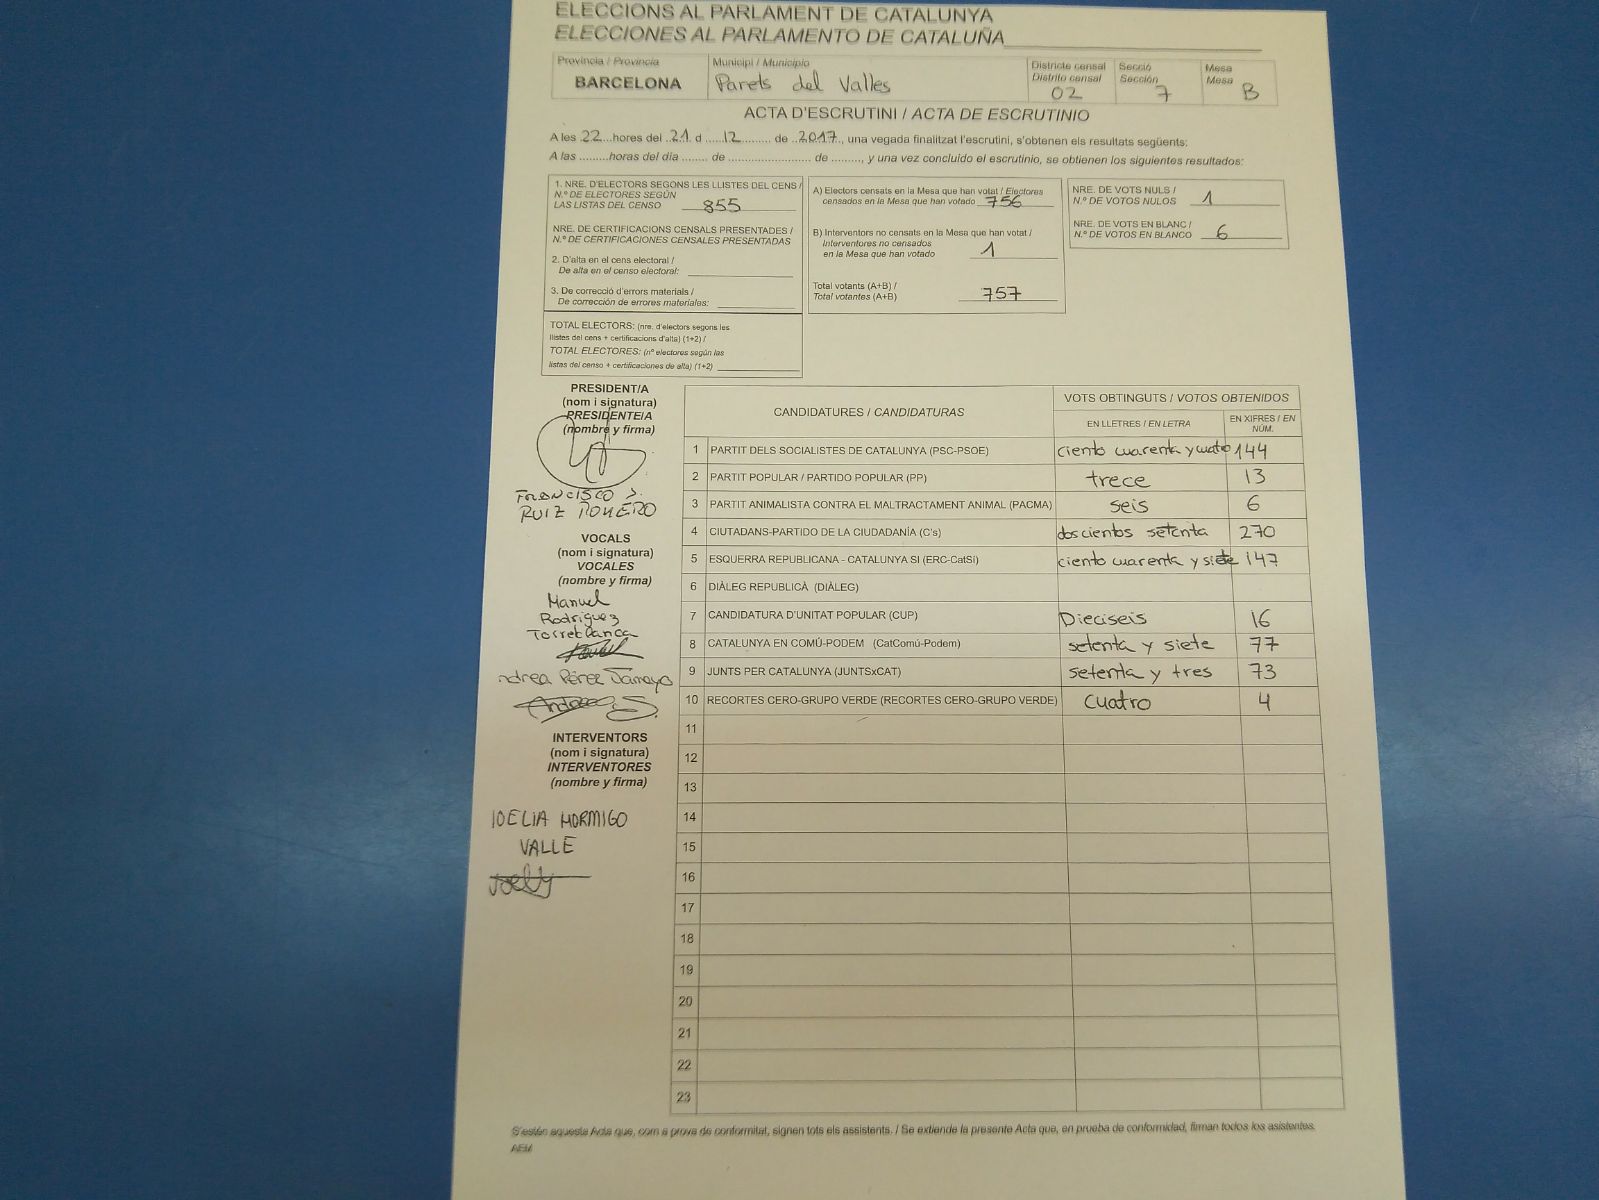 ELECCIONS AL PARLAMENT DE CATALUNYA
ELECCIONES AL PARLAMENTO DE CATALUÑA
Província / Provincia
BARCELONA
Municipi / Municipio
Parets del Valles
Districte censal
Distrito censal
02
Secció
Sección
7
Mesa
Mesa
B
ACTA D'ESCRUTINI / ACTA DE ESCRUTINIO
A les 22 hores del 21 d 12 de 2017, una vegada finalitzat l'escrutini, s'obtenen els resultats següents:
A las .........horas del día ........ de ........................ de ........., y una vez concluido el escrutinio, se obtienen los siguientes resultados:
1. NRE. D'ELECTORS SEGONS LES LLISTES DEL CENS /
N.º DE ELECTORES SEGÚN
LAS LISTAS DEL CENSO 855
NRE. DE CERTIFICACIONS CENSALS PRESENTADES /
N.º DE CERTIFICACIONES CENSALES PRESENTADAS
2. D'alta en el cens electoral /
De alta en el censo electoral:
3. De correcció d'errors materials /
De corrección de errores materiales:
TOTAL ELECTORS: (nre. d'electors segons les
llistes del cens + certificacions d'alta) (1+2) /
TOTAL ELECTORES: (nº electores según las
listas del censo + certificaciones de alta) (1+2)
A) Electors censats en la Mesa que han votat / Electores
censados en la Mesa que han votado 756
B) Interventors no censats en la Mesa que han votat /
Interventores no censados
en la Mesa que han votado 1
Total votants (A+B) /
Total votantes (A+B) 757
NRE. DE VOTS NULS /
N.º DE VOTOS NULOS 1
NRE. DE VOTS EN BLANC /
N.º DE VOTOS EN BLANCO 6
PRESIDENT/A
(nom i signatura)
PRESIDENTE/A
(nombre y firma)
FRANCISCO J.
RUIZ ROMERO
VOCALS
(nom i signatura)
VOCALES
(nombre y firma)
Manuel
Rodriguez
Torreblanca
ndrea Pérez Tamayo
INTERVENTORS
(nom i signatura)
INTERVENTORES
(nombre y firma)
IDELIA HORMIGO
VALLE
CANDIDATURES / CANDIDATURAS
VOTS OBTINGUTS / VOTOS OBTENIDOS
EN LLETRES / EN LETRA
EN XIFRES / EN NÚM.
1 PARTIT DELS SOCIALISTES DE CATALUNYA (PSC-PSOE) ciento cuarenta y cuatro 144
2 PARTIT POPULAR / PARTIDO POPULAR (PP) trece 13
3 PARTIT ANIMALISTA CONTRA EL MALTRACTAMENT ANIMAL (PACMA) seis 6
4 CIUTADANS-PARTIDO DE LA CIUDADANÍA (C's) doscientos setenta 270
5 ESQUERRA REPUBLICANA - CATALUNYA SI (ERC-CatSí) ciento cuarenta y siete 147
6 DIÀLEG REPUBLICÀ (DIÀLEG)
7 CANDIDATURA D'UNITAT POPULAR (CUP) Dieciseis 16
8 CATALUNYA EN COMÚ-PODEM (CatComú-Podem) setenta y siete 77
9 JUNTS PER CATALUNYA (JUNTSxCAT) setenta y tres 73
10 RECORTES CERO-GRUPO VERDE (RECORTES CERO-GRUPO VERDE) cuatro 4
11
12
13
14
15
16
17
18
19
20
21
22
23
S'estén aquesta Acta que, com a prova de conformitat, signen tots els assistents. / Se extiende la presente Acta que, en prueba de conformidad, firman todos los asistentes.